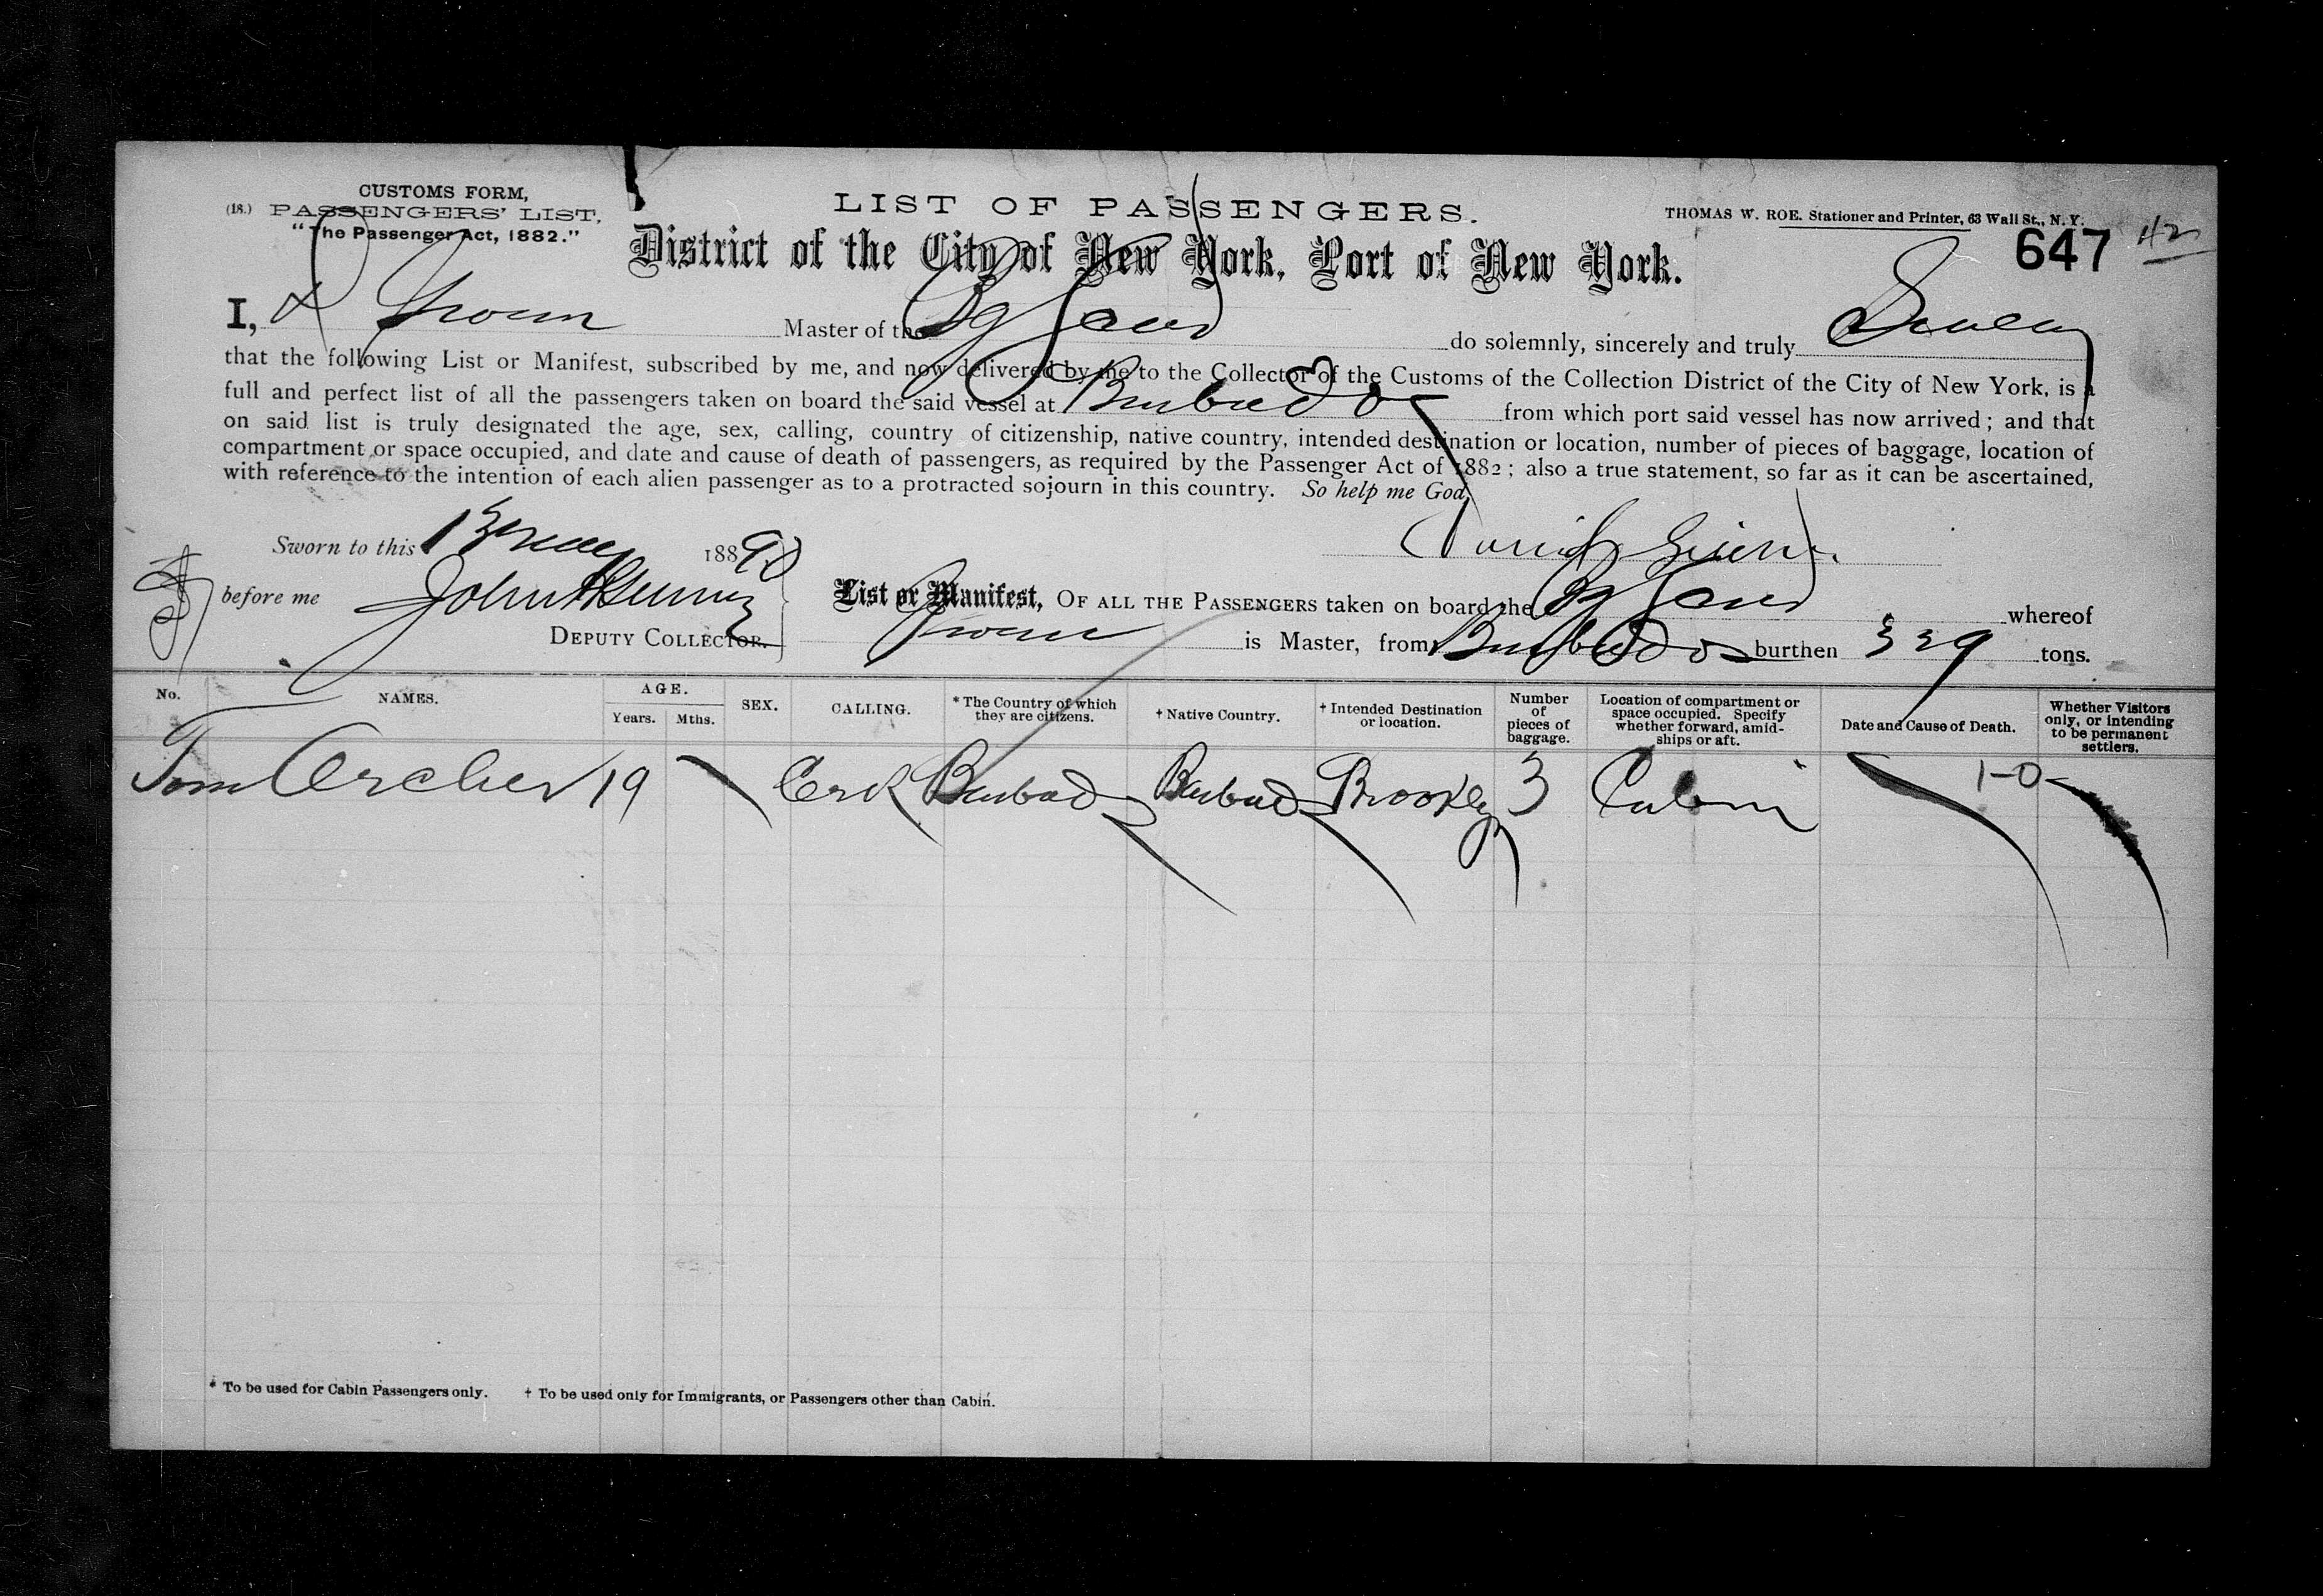 CUSTOMS FORM,
(18.) PASSENGERS' LIST,
"The Passenger Act, 1882."
LIST OF PASSENGERS.
THOMAS W. ROE. Stationer and Printer, 63 Wall St., N. Y.
District of the City of New York, Port of New York.
647 42
I, Master of the do solemnly, sincerely and truly Swear
that the following List or Manifest, subscribed by me, and now delivered by me to the Collector of the Customs of the Collection District of the City of New York, is a
full and perfect list of all the passengers taken on board the said vessel at Barbados from which port said vessel has now arrived; and that
on said list is truly designated the age, sex, calling, country of citizenship, native country, intended destination or location, number of pieces of baggage, location of
compartment or space occupied, and date and cause of death of passengers, as required by the Passenger Act of 1882; also a true statement, so far as it can be ascertained,
with reference to the intention of each alien passenger as to a protracted sojourn in this country. So help me God.
Sworn to this 13 May 1890
before me John
DEPUTY COLLECTOR.
List or Manifest, OF ALL THE PASSENGERS taken on board the whereof
is Master, from Barbados burthen 329 tons.
No. NAMES. AGE. Years. Mths. SEX. CALLING. * The Country of which they are citizens. † Native Country. † Intended Destination or location. Number of pieces of baggage. Location of compartment or space occupied. Specify whether forward, amidships or aft. Date and Cause of Death. Whether Visitors only, or intending to be permanent settlers.
Tom Archer 19 Clerk Barbados Barbados Brooklyn 3 Cabin 1-0-
* To be used for Cabin Passengers only. † To be used only for Immigrants, or Passengers other than Cabin.